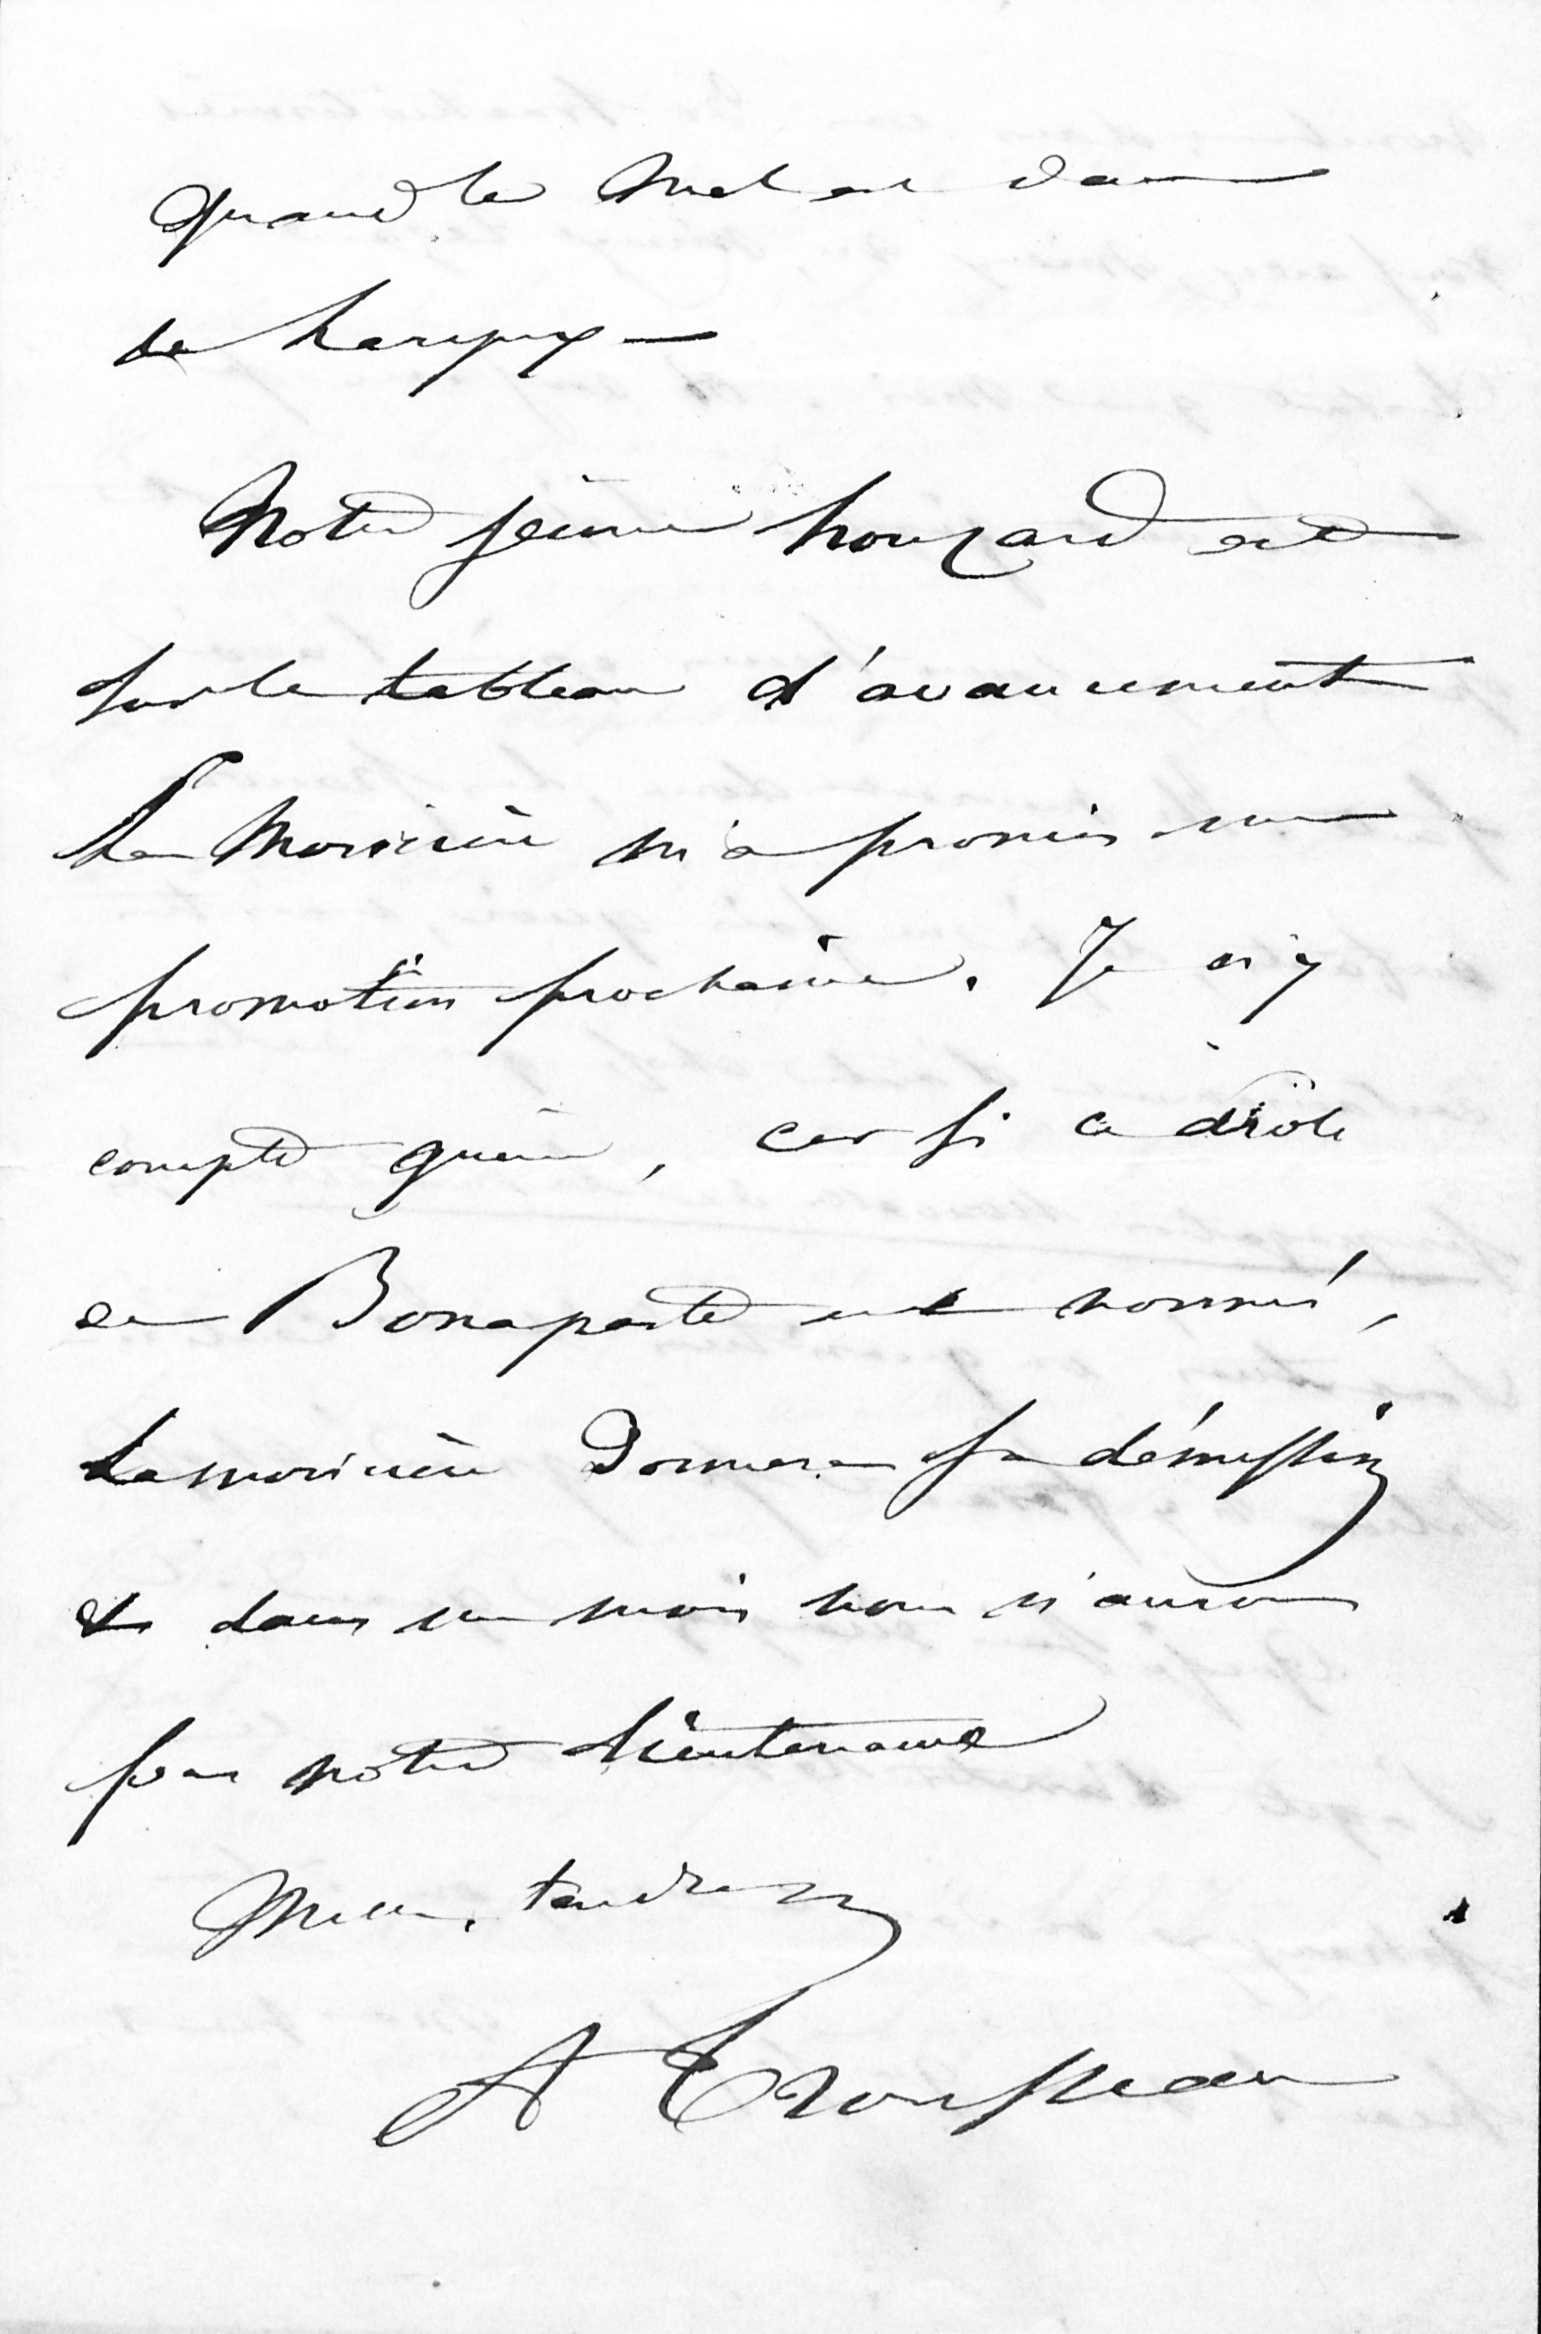 quand le mal est dans
le larynx —
Notre jeune houzard est
sur le tableau d'avancement
La Moricière m'a promis une
promotion prochaine. Je n'y
compte guère, car si ce drôle
de Bonaparte est nommé,
Lamoricière donnera sa démission
et dans un mois nous n'aurons
pas notre lieutenance
Mille tendresses
A Trousseau